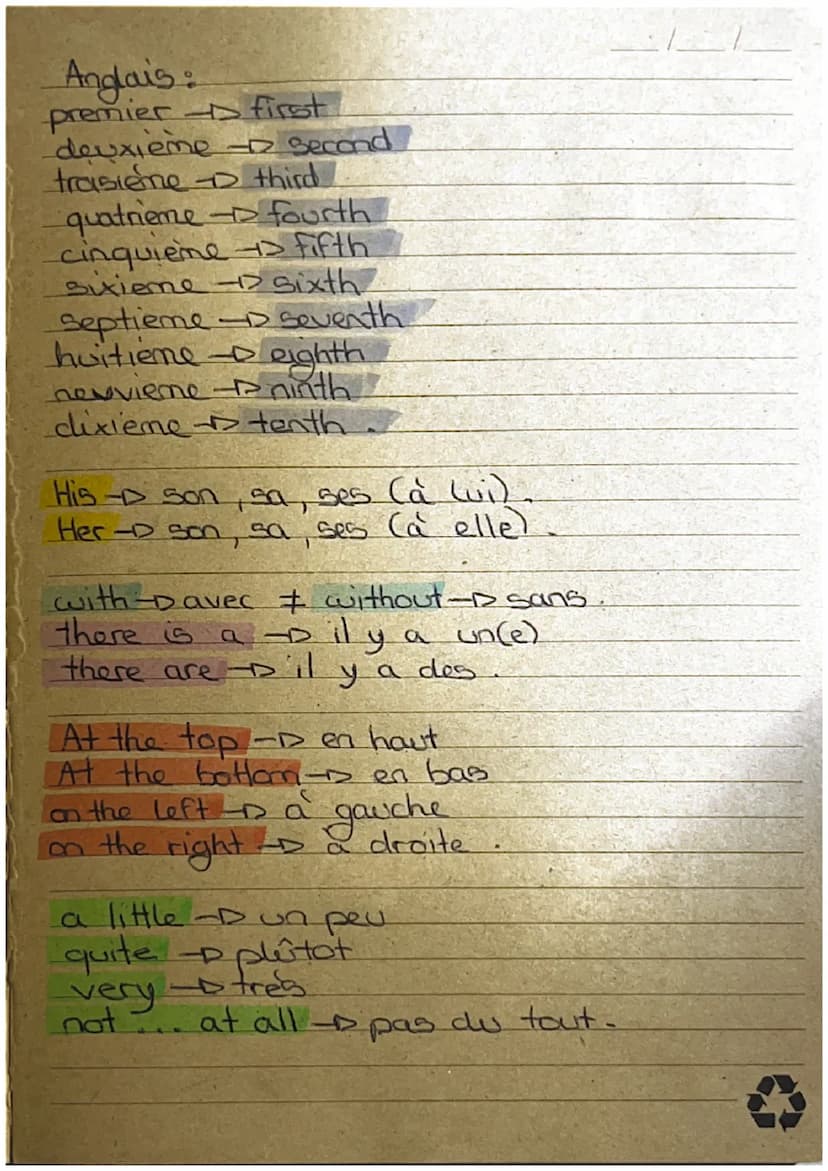 Anglais:
premier → first
deuxième → second
traisième → third
quatrième → fourth
cinquième → fifth
sixieme → sixth
septieme → seventh
huitieme → eighth
neuvieme → ninth
dixieme → tenth.
His → son, sa, ses (à lui).
Her → son, sa, ses (à elle).
with → avec ≠ without → sans.
there is a → il y a un(e)
there are → il y a des.
At the top → en haut
At the bottom → en bas
on the left → à gauche
on the right → à droite.
a little → un peu
quite → plûtot
very → très
not ... at all → pas du tout.